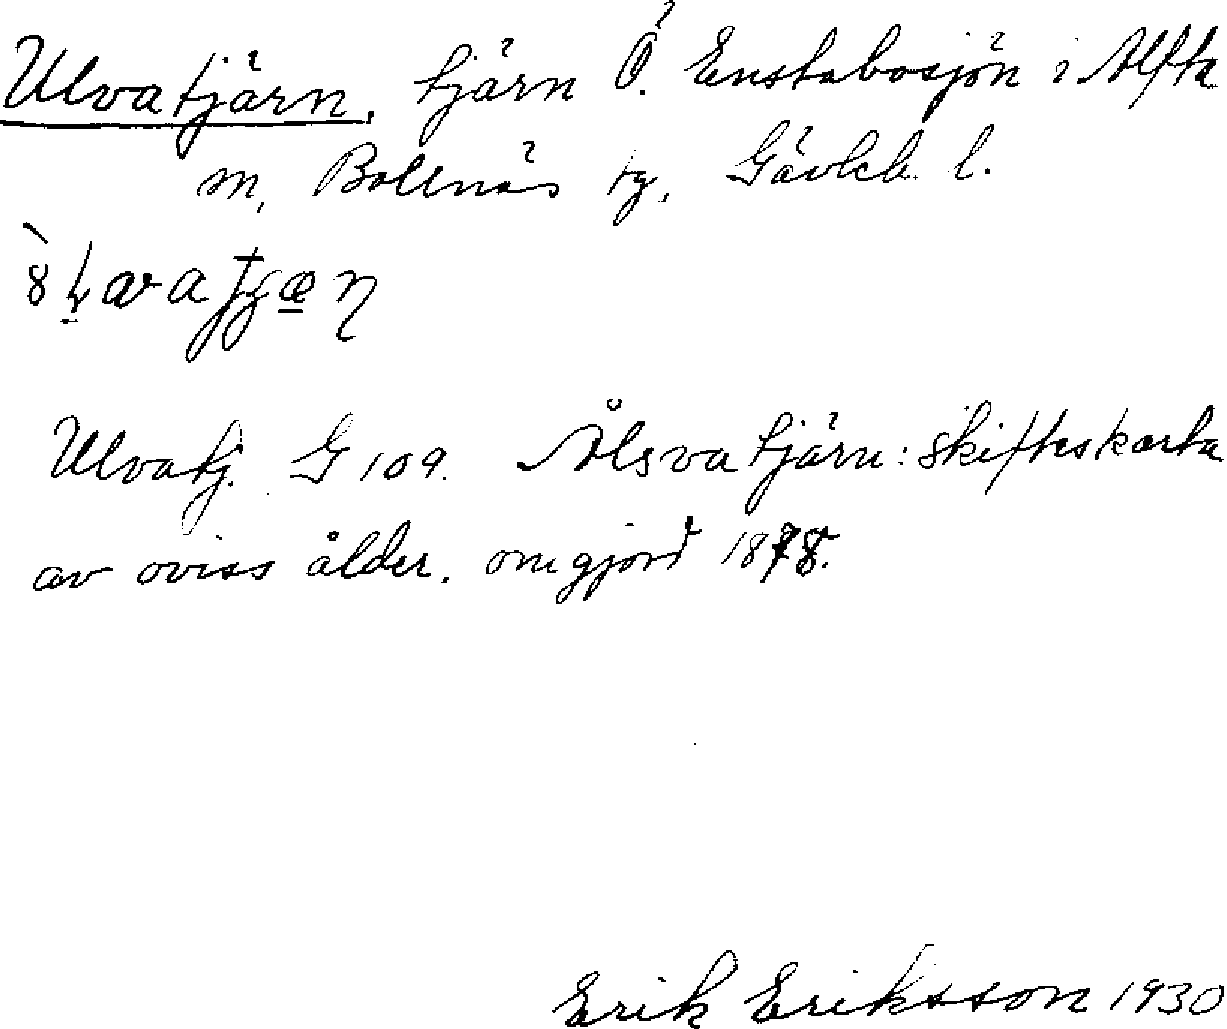 Ulvatjärn, tjärn Ö. Enstabosjön i Alfta
m, Bollnäs tg, Gävleb. l.
Ulvatj. G 109. Ålsva tjärn: skifteskarta
av oviss ålder. omgjord 1878.
Erik Eriksson 1930